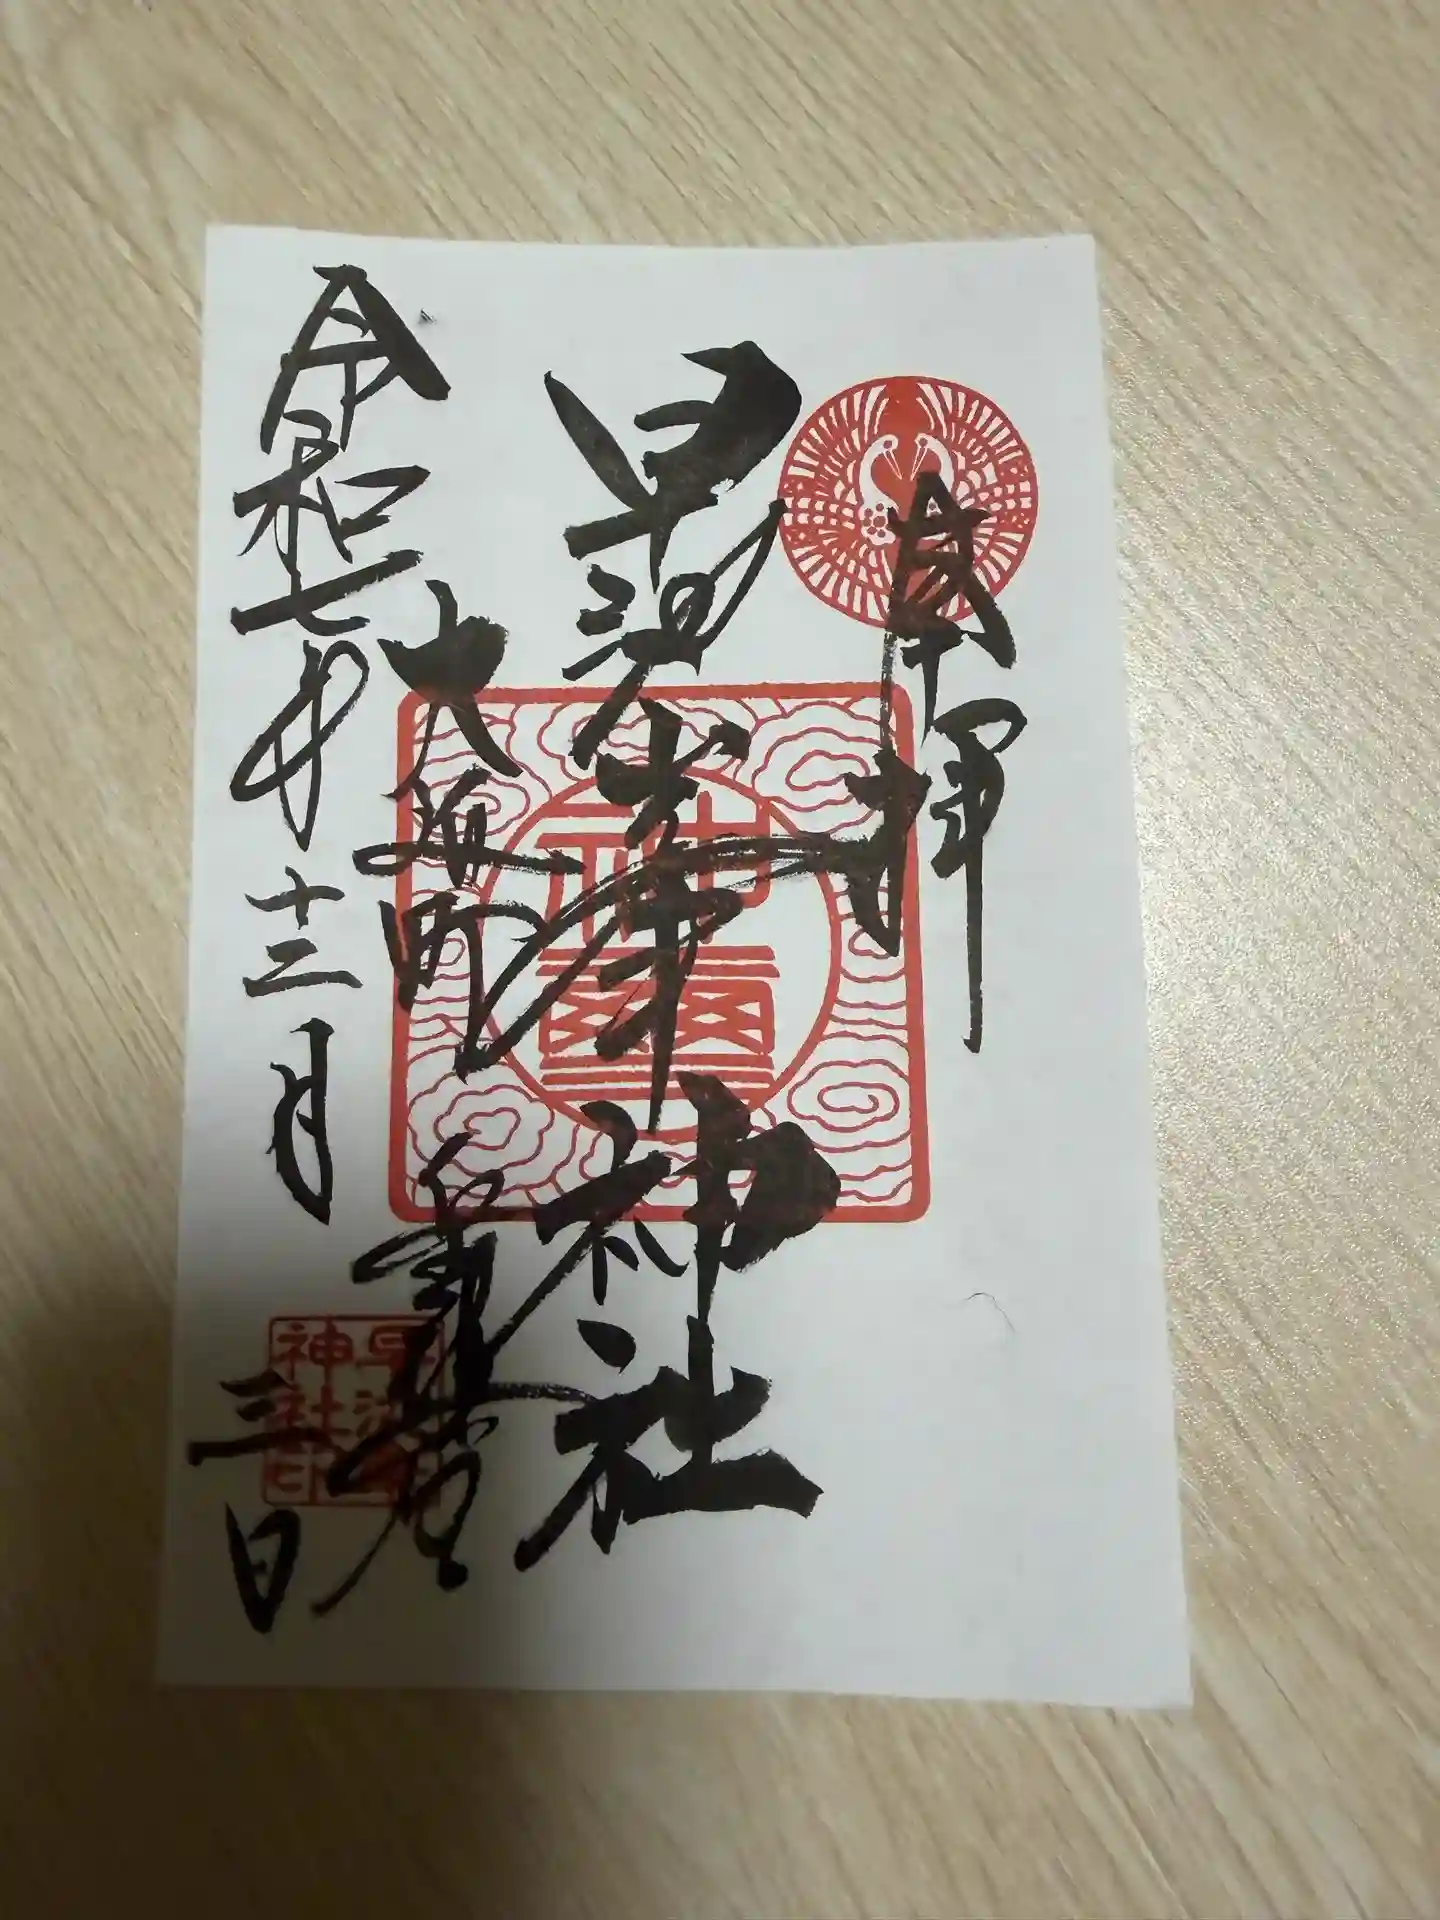 奉拝
早池峯神社
大迫町
令和七年十二月三日
早池峯
神社印